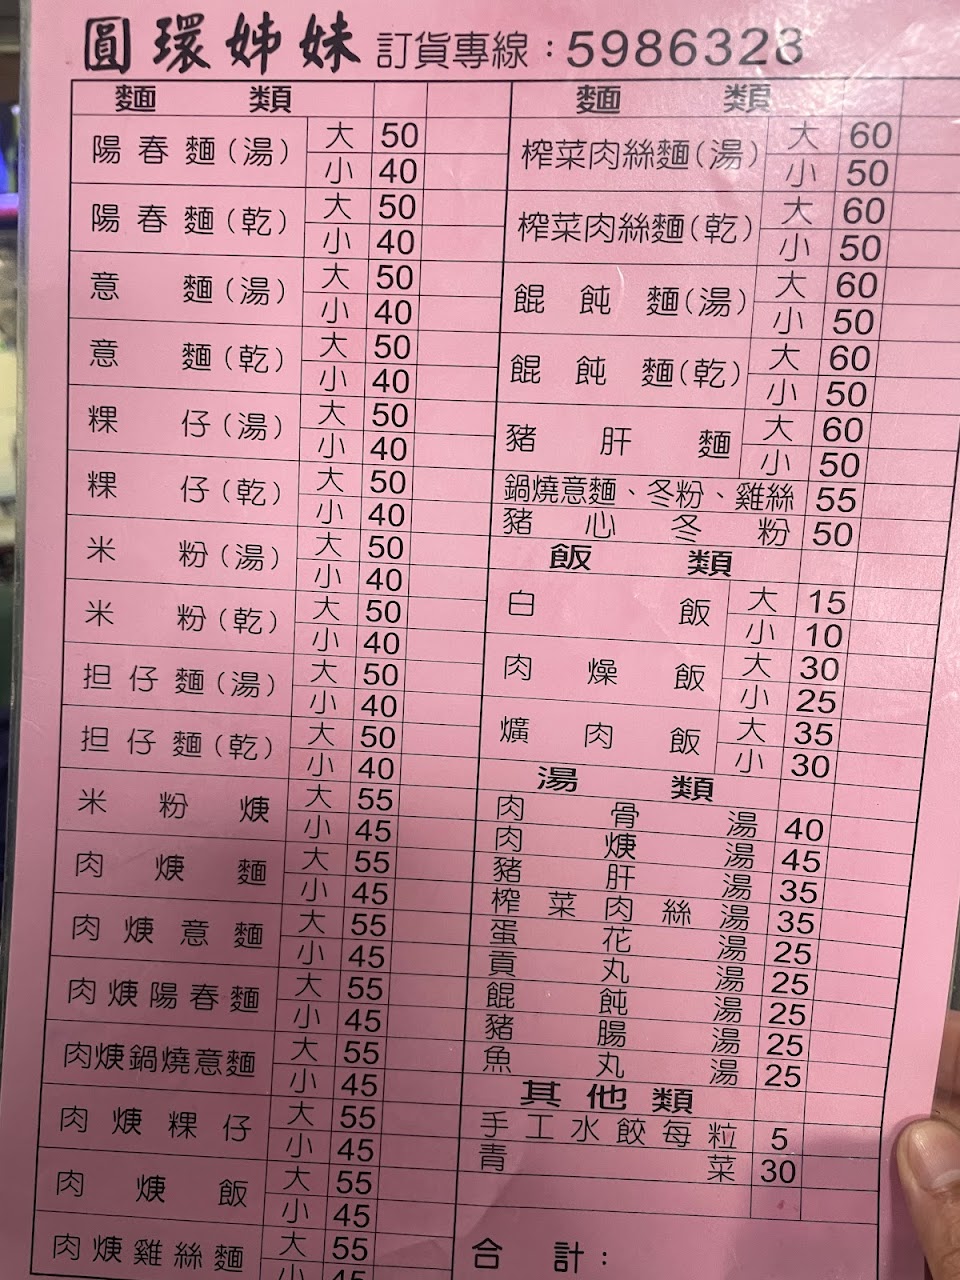 圓環姊妹 訂貨專線：5986323
麵 類
陽春麵(湯) 大 50
小 40
陽春麵(乾) 大 50
小 40
意麵(湯) 大 50
小 40
意麵(乾) 大 50
小 40
粿仔(湯) 大 50
小 40
粿仔(乾) 大 50
小 40
米粉(湯) 大 50
小 40
米粉(乾) 大 50
小 40
担仔麵(湯) 大 50
小 40
担仔麵(乾) 大 50
小 40
米粉焿 大 55
小 45
肉焿麵 大 55
小 45
肉焿意麵 大 55
小 45
肉焿陽春麵 大 55
小 45
肉焿鍋燒意麵 大 55
小 45
肉焿粿仔 大 55
小 45
肉焿飯 大 55
小 45
肉焿雞絲麵 大 55
小 45
麵 類
榨菜肉絲麵(湯) 大 60
小 50
榨菜肉絲麵(乾) 大 60
小 50
餛飩麵(湯) 大 60
小 50
餛飩麵(乾) 大 60
小 50
豬肝麵 大 60
小 50
鍋燒意麵、冬粉、雞絲 55
豬心冬粉 50
飯 類
白飯 大 15
小 10
肉燥飯 大 30
小 25
爌肉飯 大 35
小 30
湯 類
肉骨湯 40
肉焿湯 45
豬肝湯 35
榨菜肉絲湯 35
蛋花湯 25
貢丸湯 25
餛飩湯 25
豬腸湯 25
魚丸湯 25
其他類
手工水餃每粒 5
青菜 30
合 計：